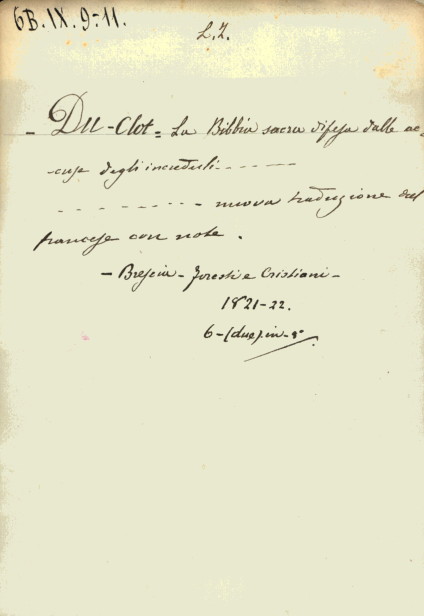 6B.IX.9-11.
L.I.
- Du-Clot = La Bibbia sacra difesa dalle ac=
-cuse degli increduli - - - - - -
- - - - - - - - nuova traduzione dal
francese con note.
- Brescia - Foresti e Cristiani -
1821-22.
6-(due) in-8°.